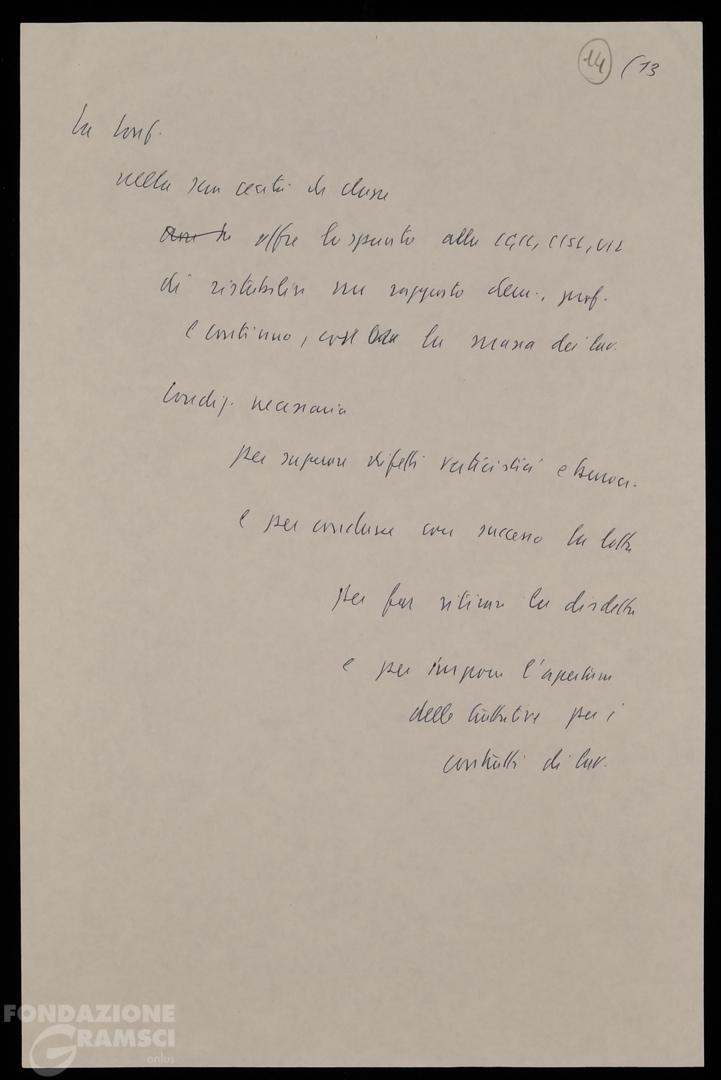 14 (13
La Conf.
nella sua cecità di classe
offre lo spunto alla CGIL, CISL, UIL
di ristabilire un rapporto dem., prof.
e continuo, con la massa dei lav.
Condiz. necessaria
per superare difetti verticistici e burocr.
e per concludere con successo la lotta
per far ritirare la disdetta
e per imporre l'apertura
delle trattative per i
contratti di lav.
FONDAZIONE
GRAMSCI
onlus